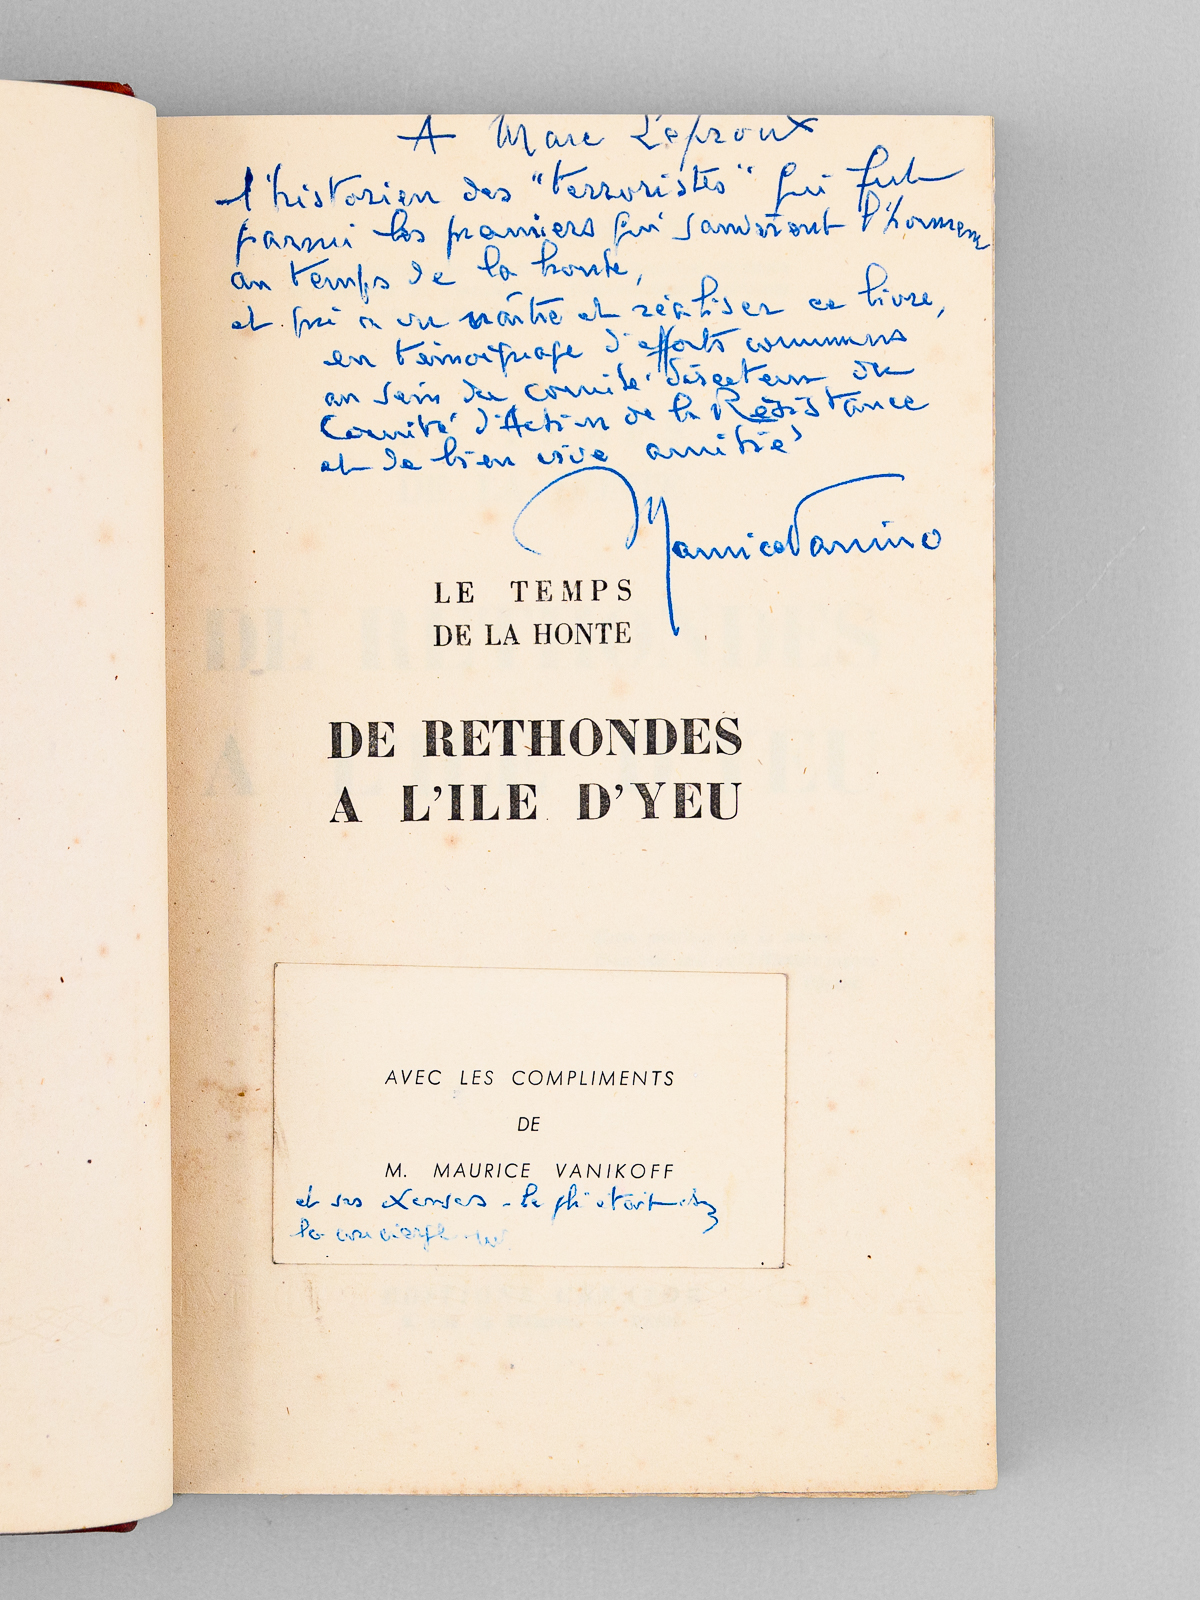 A Marc Leproux
l'historien des "terroristes" qui fut
parmi les premiers qui sauvèrent l'honneur
au temps de la honte,
et qui a vu naître et réaliser ce livre,
en témoignage d'efforts communs
au sein du Comité directeur du
Comité d'Action de la Résistance
et de bien vive amitié
Maurice Vanino
LE TEMPS
DE LA HONTE
DE RETHONDES
A L'ILE D'YEU
AVEC LES COMPLIMENTS
DE
M. MAURICE VANIKOFF
et ses excuses - le pli était chez
la concierge